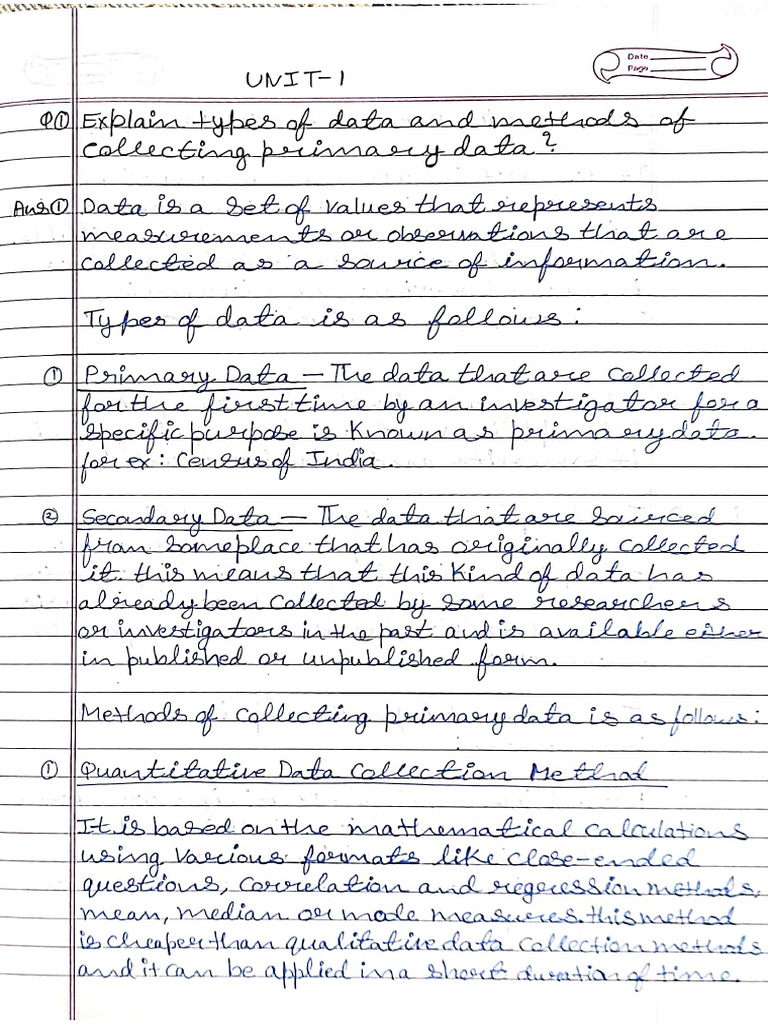 Date
Page
UNIT-1
Q① Explain types of data and methods of
collecting primary data?
Ans① Data is a set of values that represents
measurements or observations that are
collected as a source of information.
Types of data is as follows:
① Primary Data – The data that are collected
for the first time by an investigator for a
specific purpose is known as primary data.
for ex: Census of India.
② Secondary Data – The data that are sourced
from someplace that has originally collected
it. this means that this kind of data has
already been collected by some researchers
or investigators in the past and is available either
in published or unpublished form.
Methods of collecting primary data is as follows:
① Quantitative Data Collection Method
It is based on the mathematical calculations
using various formats like close-ended
questions, correlation and regression methods,
mean, median or mode measures. this method
is cheaper than qualitative data collection methods
and it can be applied in a short duration of time.